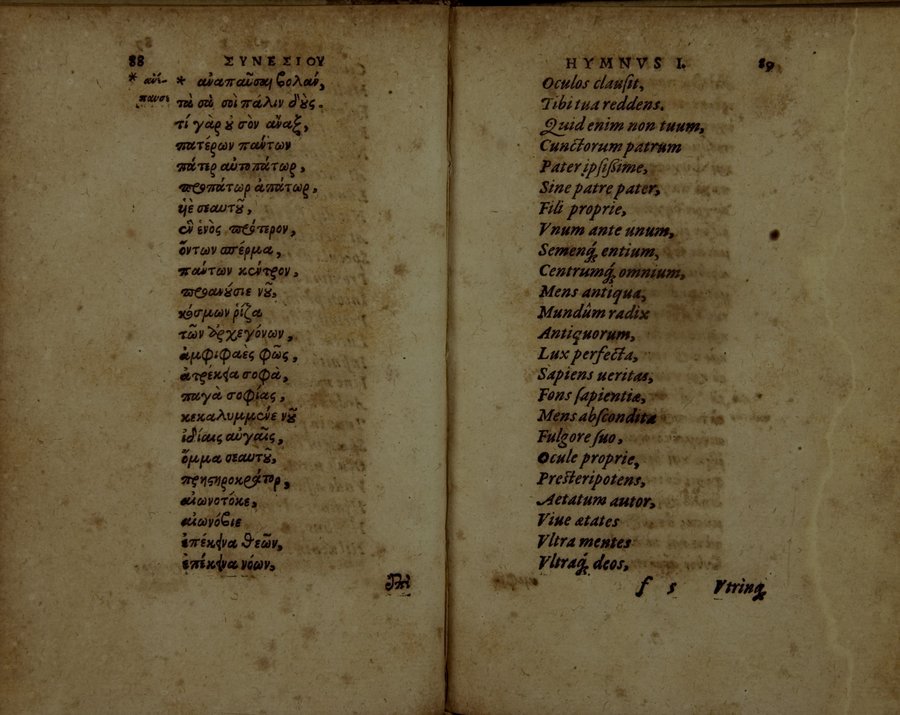 88 ΣΥΝΕΣΙΟΥ
* ἀνέ-
παυσε
* ἀναπαῦσαι βολὰν,
τὰ σὰ σοὶ πάλιν δούς.
τί γὰρ οὐ σὸν ἄναξ,
πατέρων πάντων
πάτερ αὐτοπάτωρ,
προπάτωρ ἀπάτωρ,
υἱὲ σεαυτοῦ,
ἓν ἑνὸς πρότερον,
ὄντων σπέρμα,
πάντων κέντρον,
προανούσιε νοῦ,
κόσμων ῥίζα
τῶν ἀρχεγόνων,
ἀμφιφαὲς φῶς,
ἀτρέκεια σοφὰ,
παγὰ σοφίας,
κεκαλυμμένε νοῦ
ἰδίαις αὐγαῖς,
ὄμμα σεαυτοῦ,
πρηστηροκράτορ,
αἰωνοτόκε,
αἰωνόβιε
ἐπέκεινα θεῶν,
ἐπέκεινα νόων,
HYMNVS I. 89
Oculos clauſit,
Tibi tua reddens.
Quid enim non tuum,
Cunctorum patrum
Pater ipſiſsime,
Sine patre pater,
Fili proprie,
Vnum ante unum,
Semenq́; entium,
Centrumq́; omnium,
Mens antiqua,
Mundûm radix
Antiquorum,
Lux perfecta,
Sapiens ueritas,
Fons ſapientiæ,
Mens abſcondita
Fulgore ſuo,
Ocule proprie,
Presteripotens,
Aetatum autor,
Viue ætates
Vltra mentes
Vltraq́; deos,
f 5 Vtrinq́;